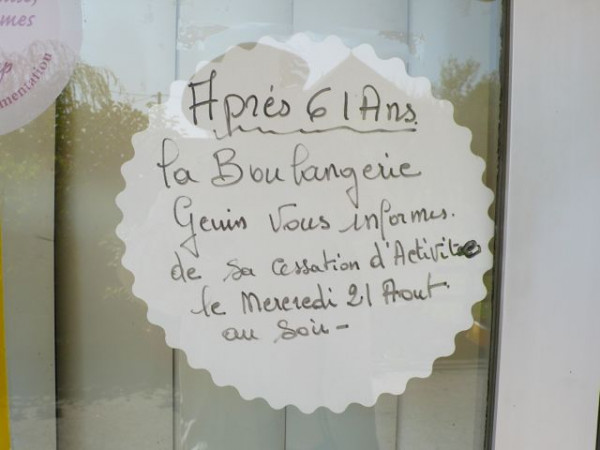 mes
mentation
Aprés 61 Ans
la Boulangerie
Genin Vous informes.
de sa cessation d'Activité
le Mercredi 21 Aout
au Soir-